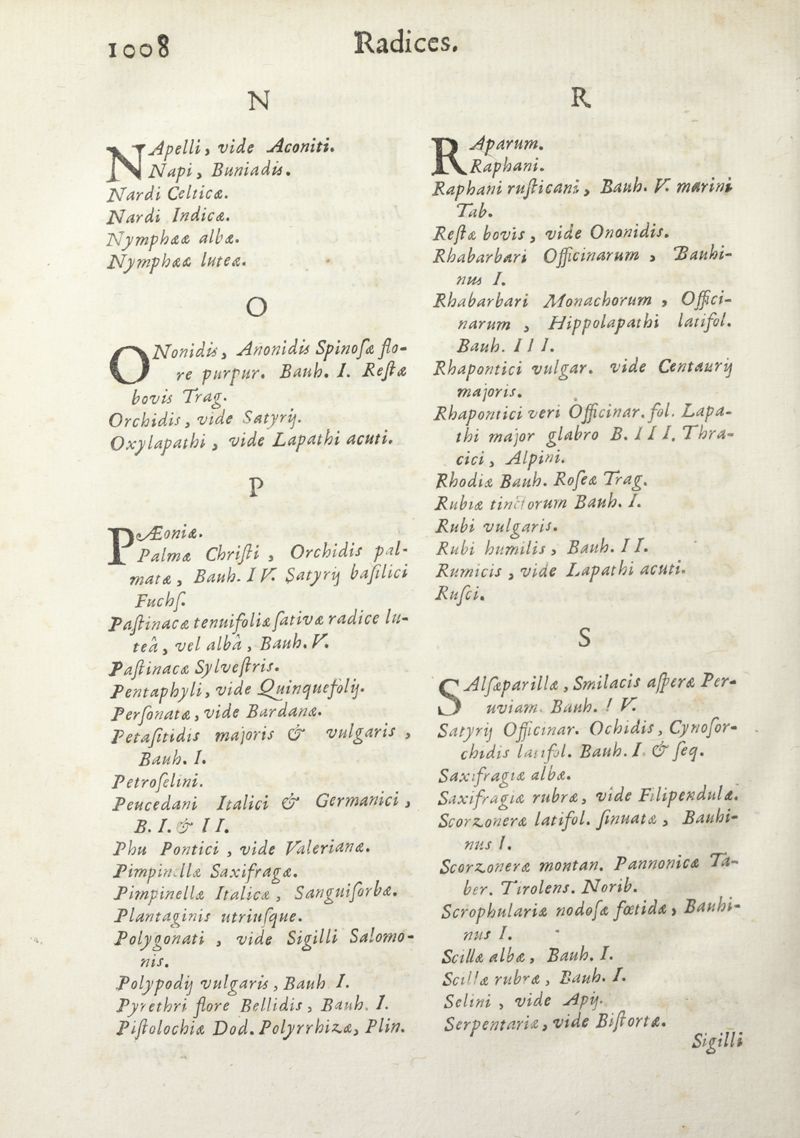 1008
Radices.
N
NApelli, vide Aconiti.
Napi, Buniadis.
Nardi Celticæ.
Nardi Indicæ.
Nymphææ albæ.
Nymphææ luteæ.
O
ONonidis, Anonidis Spinoſæ flo-
re purpur. Bauh. I. Reſtæ
bovis Trag.
Orchidis, vide Satyrij.
Oxylapathi, vide Lapathi acuti.
P
PÆoniæ.
Palmæ Chriſti, Orchidis pal-
matæ, Bauh. IV. Satyrij baſilici
Fuchſ.
Paſtinacæ tenuifoliæ ſativæ radice lu-
teâ, vel albâ, Bauh. V.
Paſtinacæ Sylveſtris.
Pentaphyli, vide Quinquefolij.
Perſonatæ, vide Bardanæ.
Petaſitidis majoris & vulgaris,
Bauh. I.
Petroſelini.
Peucedani Italici & Germanici,
B. I. & II.
Phu Pontici, vide Valerianæ.
Pimpinellæ Saxifragæ.
Pimpinellæ Italicæ, Sanguiſorbæ.
Plantaginis utriuſque.
Polygonati, vide Sigilli Salomo-
nis.
Polypodij vulgaris, Bauh I.
Pyrethri flore Bellidis, Bauh. I.
Piſtolochiæ Dod. Polyrrhizæ, Plin.
R
RAparum.
Raphani.
Raphani ruſticani, Bauh. V. marini
Tab.
Reſtæ bovis, vide Ononidis.
Rhabarbari Officinarum, Bauhi-
nus I.
Rhabarbari Monachorum, Offici-
narum, Hippolapathi latifol.
Bauh. III.
Rhapontici vulgar. vide Centaurij
majoris.
Rhapontici veri Officinar. fol. Lapa-
thi major glabro B. III. Thra-
cici, Alpini.
Rhodiæ Bauh. Roſeæ Trag.
Rubiæ tinctorum Bauh. I.
Rubi vulgaris.
Rubi humilis, Bauh. II.
Rumicis, vide Lapathi acuti.
Ruſci.
S
SAlſæparillæ, Smilacis aſperæ Per-
uviam. Bauh. ! V.
Satyrij Officinar. Ochidis, Cynoſor-
chidis latifol. Bauh. I. & ſeq.
Saxifragiæ albæ.
Saxifragiæ rubræ, vide Filipendulæ.
Scorzoneræ latifol. ſinuatæ, Bauhi-
nus I.
Scorzoneræ montan. Pannonicæ Ta-
ber. Tirolens. Norib.
Scrophulariæ nodoſæ fœtidæ, Bauhi-
nus I.
Scillæ albæ, Bauh. I.
Scillæ rubræ, Bauh. I.
Selini, vide Apij.
Serpentariæ, vide Biſtortæ.
Sigilli